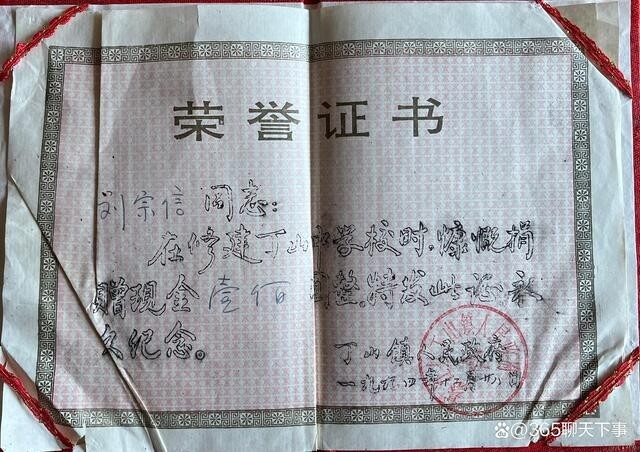 荣誉证书
刘宗信 同志：
在修建丁山小学校时，慷慨捐
赠现金 壹佰 元整，特发此证，永
久纪念。
丁山镇人民政府
一九九四年十二月廿八日
@365聊天下事